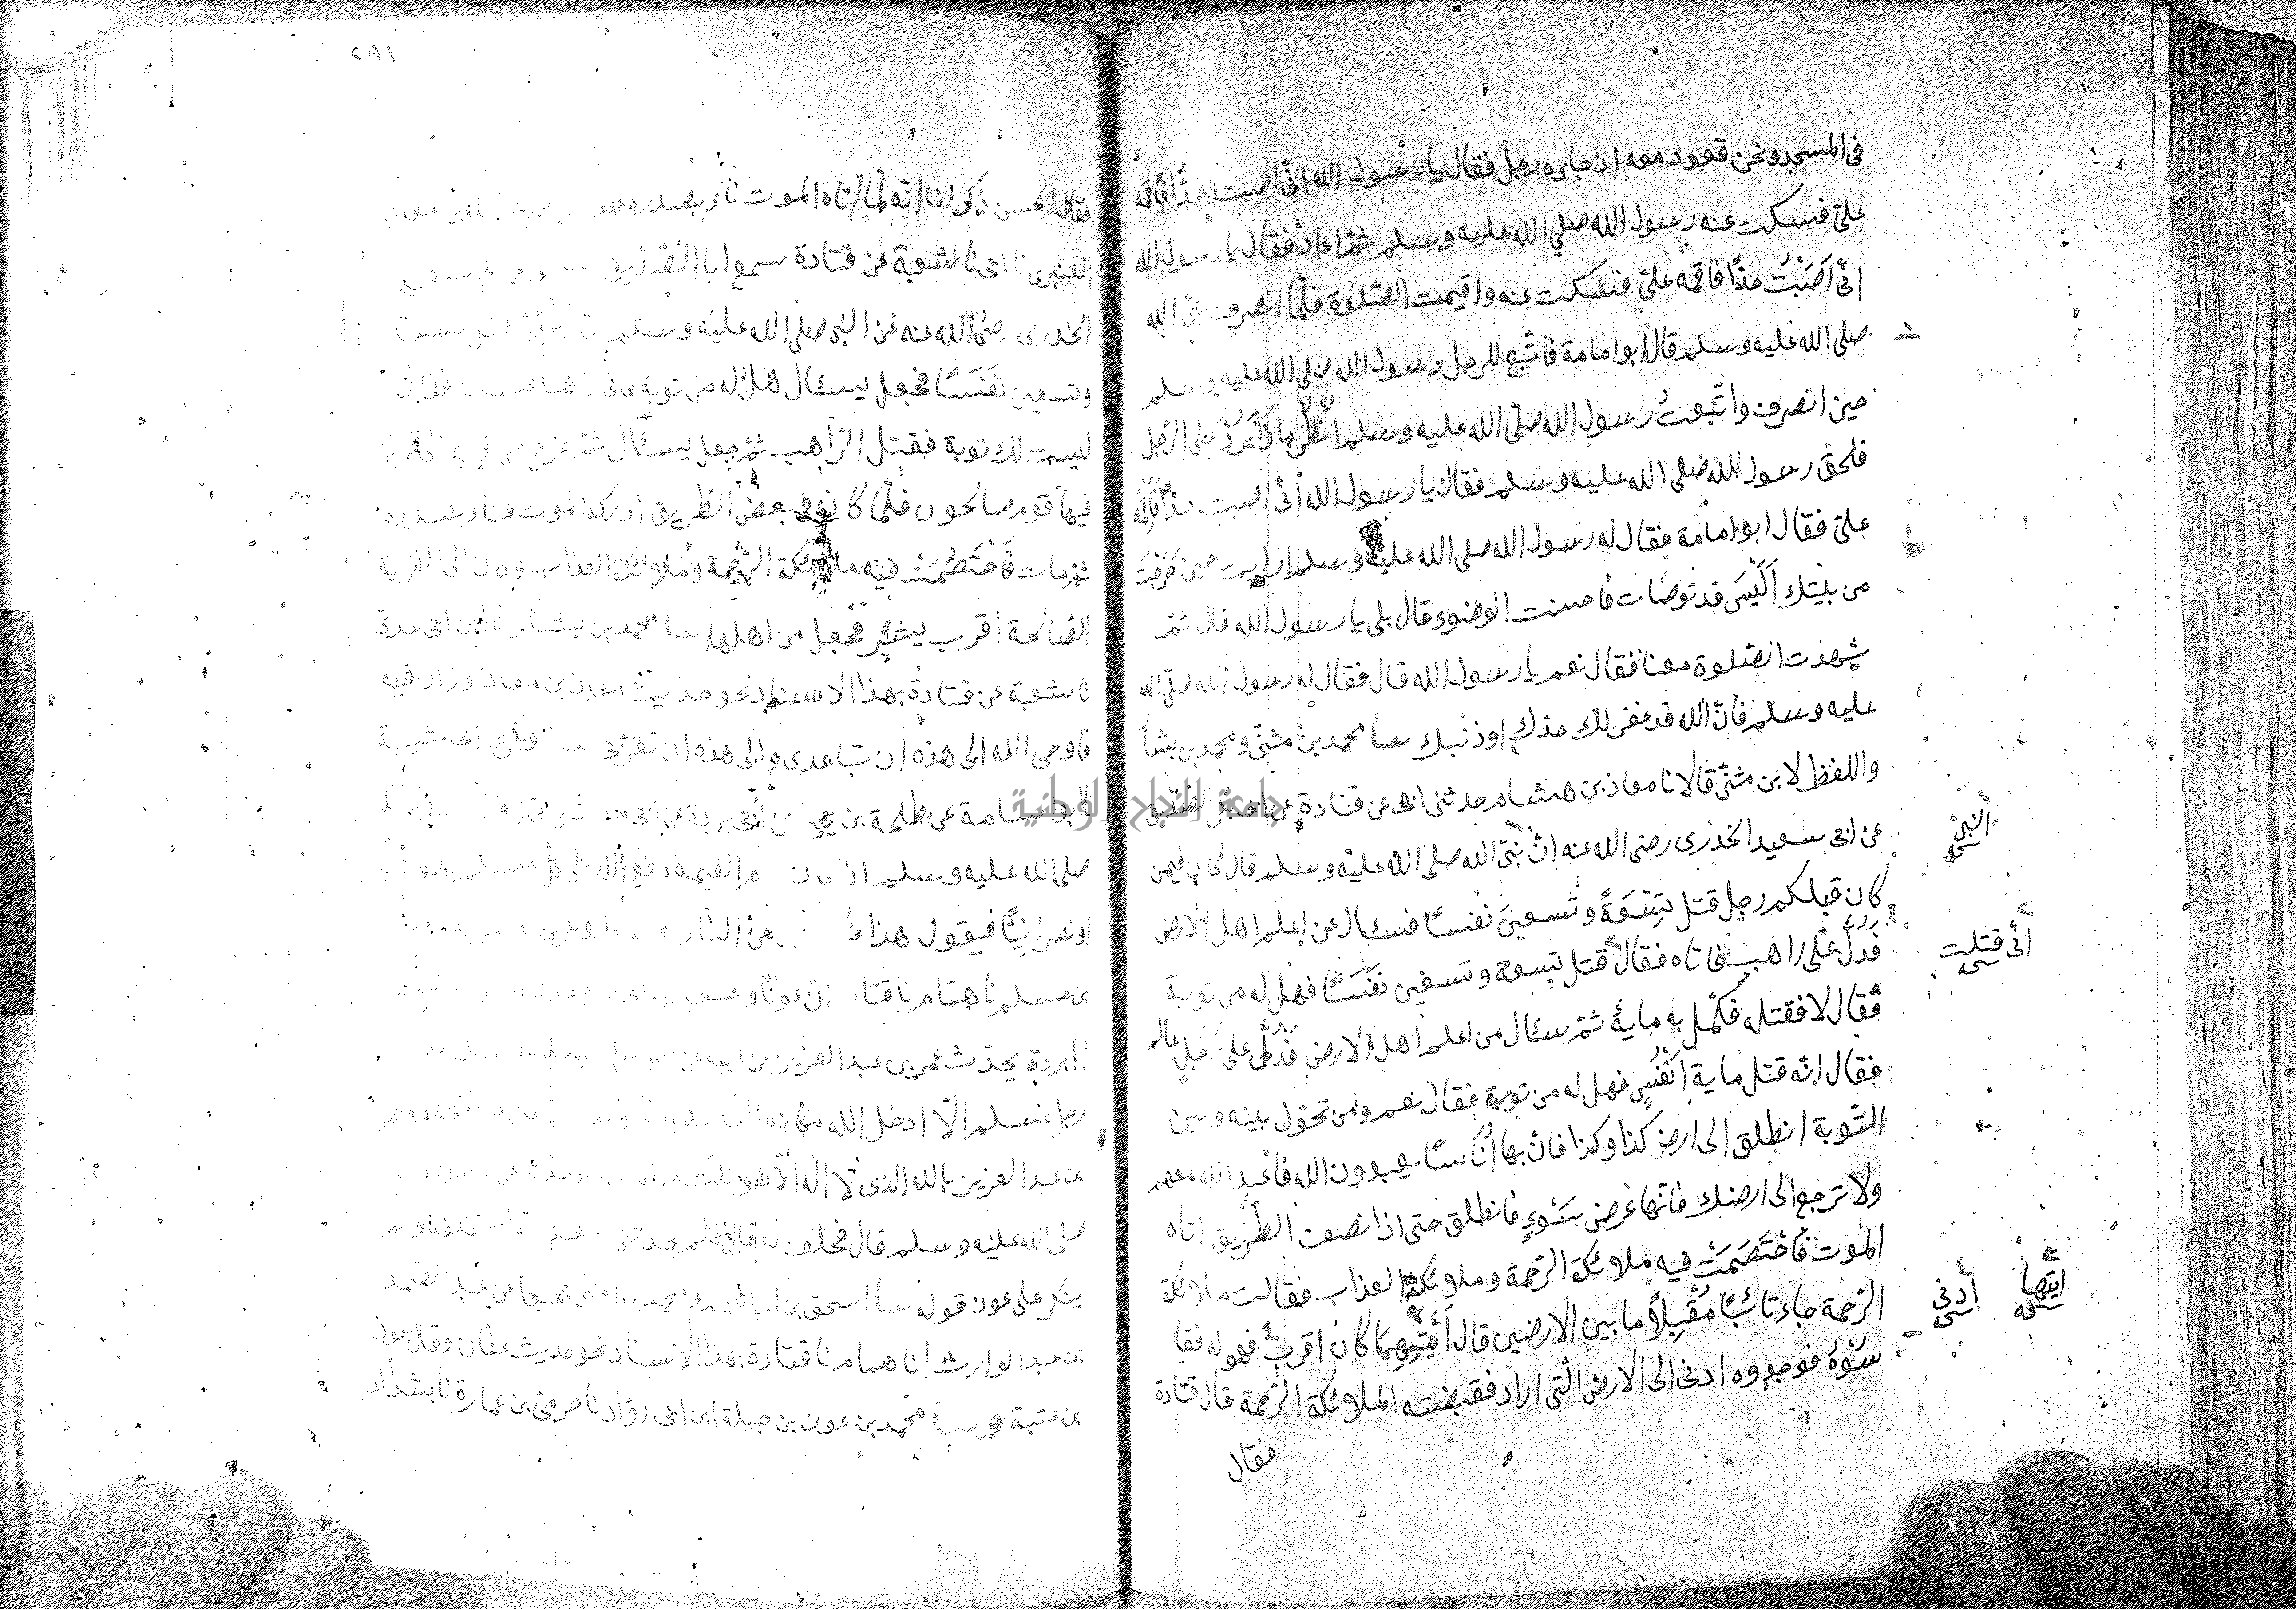 فى المسجد ونحن قعود معه اذ جاءه رجل فقال يا رسول الله انّى اصبت حدًّا فاقمه
علىّ فسكت عنه رسول الله صلى الله عليه وسلم ثمّ اعاد فقال يا رسول الله
انّى اَصَبْتُ حدًّا فاقمه علىّ فسكت عنه واقيمت الصّلوة فلمّا انصرف نبىّ الله
صلى الله عليه وسلم قال ابو امامة فاتّبع الرجل رسول الله صلى الله عليه وسلم
حين انصرف واتّبعتُ رسول الله صلى الله عليه وسلم أنظُرُ ماذا يَرُدُّ على الرّجل
فلحق رسول الله صلى الله عليه وسلم فقال يا رسول الله انّى اصبت حدًّا فَاقِمْهُ
علىّ فقال ابو امامة فقال له رسول الله صلى الله عليه وسلم ارايت حين خَرَجْتَ
من بيتك اَلَيْسَ قد توضات فاحسنت الوضوء قال بلى يا رسول الله قال ثمّ
شهدت الصّلوة معنا فقال نعم يا رسول الله قال فقال له رسول الله صلى الله
عليه وسلم فانّ الله قد غفر لك حدك اوذنبك حدثنا محمد بن مثنّى ومحمد بن بشا
واللفظ لابن مثنّى قالا نا معاذ بن هشام حدثنى ابى عن قتادة عن ابى الصّدّيق
عن ابى سعيد الخدرى رضى الله عنه انّ نبىّ الله صلى الله عليه وسلم قال كان فيمن
النبى
كان قبلكم رجل قتل تِسْعَةً وتسعينَ نفسًا فسال عن اعلم اهل الارض
فَدُلَّ على راهب فاتاه فقال قتل تسعة وتسعين نَفْسًا فهل له من توبة
انّى قتلت
فقال لا فقتله فكمّل به ماية ثمّ سئال من اعلم اهل الارض فَدُلَّ على رَجُلٍ عالم
فقال انّه قتل ماية اَنْفُسٍ فهل له من توبة فقال نعم ومن تحوّل بينه وبين
التّوبة انطلق الى ارض كذا وكذا فانّ بها اُنَاسًا يعبدون الله فاعبد الله معهم
ولا ترجع الى ارضك فانّها عرض سَوْءٍ فانطلق حتى اذا نصف الطّريق اتاه
الموت فَاخْتَصَمَتْ فيه ملائكة الرّحمة وملائكة العذاب فقالت ملائكة
الرّحمة جاء تائبًا مُقْبِلاً ما بين الارضين قال اَيَّتِهِمَا كان اقرب فهو له فقا
ايتها
ادنى
سَوْهُ فوجدوه ادنى الى الارض الّتى اراد فقبضته الملائكة الرّحمة قال قتادة
فقال
٢٩١
فقال الحسن ذكر لنا انّه لمّا اتاه الموت ناء بصدره
العنبرى نا ابى نا شعبة عن قتادة سمع ابا الصّدّيق
الخدرى رضى الله عنه عن النبى صلى الله عليه وسلم ان رجلا قتل تسعة
وتسعين نَفْسًا فجعل يسئال هل له من توبة فاتى راهبا فسئاله فقال
ليست لك توبة فقتل الرّاهب ثمّ جعل يسئال ثمّ خرج من قرية الى قرية
فيها قوم صالحون فلمّا كان فى بعض الطّريق ادركه الموت فناء بصدره
ثمّ مات فَاخْتَصَمَتْ فيه ملائكة الرّحمة وملائكة العذاب وكان الى القرية
الصّالحة اقرب بشبر فجعل من اهلها حدثنا محمد بن بشار نا ابن ابى عدى
نا شعبة عن قتادة بهذا الاسناد نحو حديث معاذ بن معاذ وزاد فيه
فاوحى الله الى هذه ان تباعدى والى هذه ان تقرّبى حدثنا ابو بكر بن ابى شيبة
نا ابو اسامة عن طلحة بن يحيى عن ابى بردة عن ابى موسى قال قال
صلى الله عليه وسلم اذا كان يوم القيمة دفع الله الى كل مسلم يهوديّا
او نصرانيًّا فيقول هذا من النّار
بن مسلم نا همّام نا قتادة انّ عونًا وسعيد بن ابى بردة
ابا بردة يحدّث عمر بن عبد العزيز عن ابيه عن النبى صلى الله عليه وسلم
رجل مسلم الّا ادخل الله مكانه
بن عبد العزيز بالله الذى لا اله الّا هو ثلث مرات
صلى الله عليه وسلم قال فحلف له قال فلم يحدّثنى سعيد انه استحلفه ولم
ينكر على عون قوله حدثنا اسحق بن ابراهيم ومحمد بن مثنى جميعا عن عبد الصّمد
بن عبد الوارث انا همام نا قتادة بهذا الاسناد نحو حديث عفّان وقال عون
بن عتبة وحدثنا محمد بن عون بن جبلة ابن ابى روّاد نا حرمىّ بن عمارة نا شدّاد
جامعة النجاح الوطنية